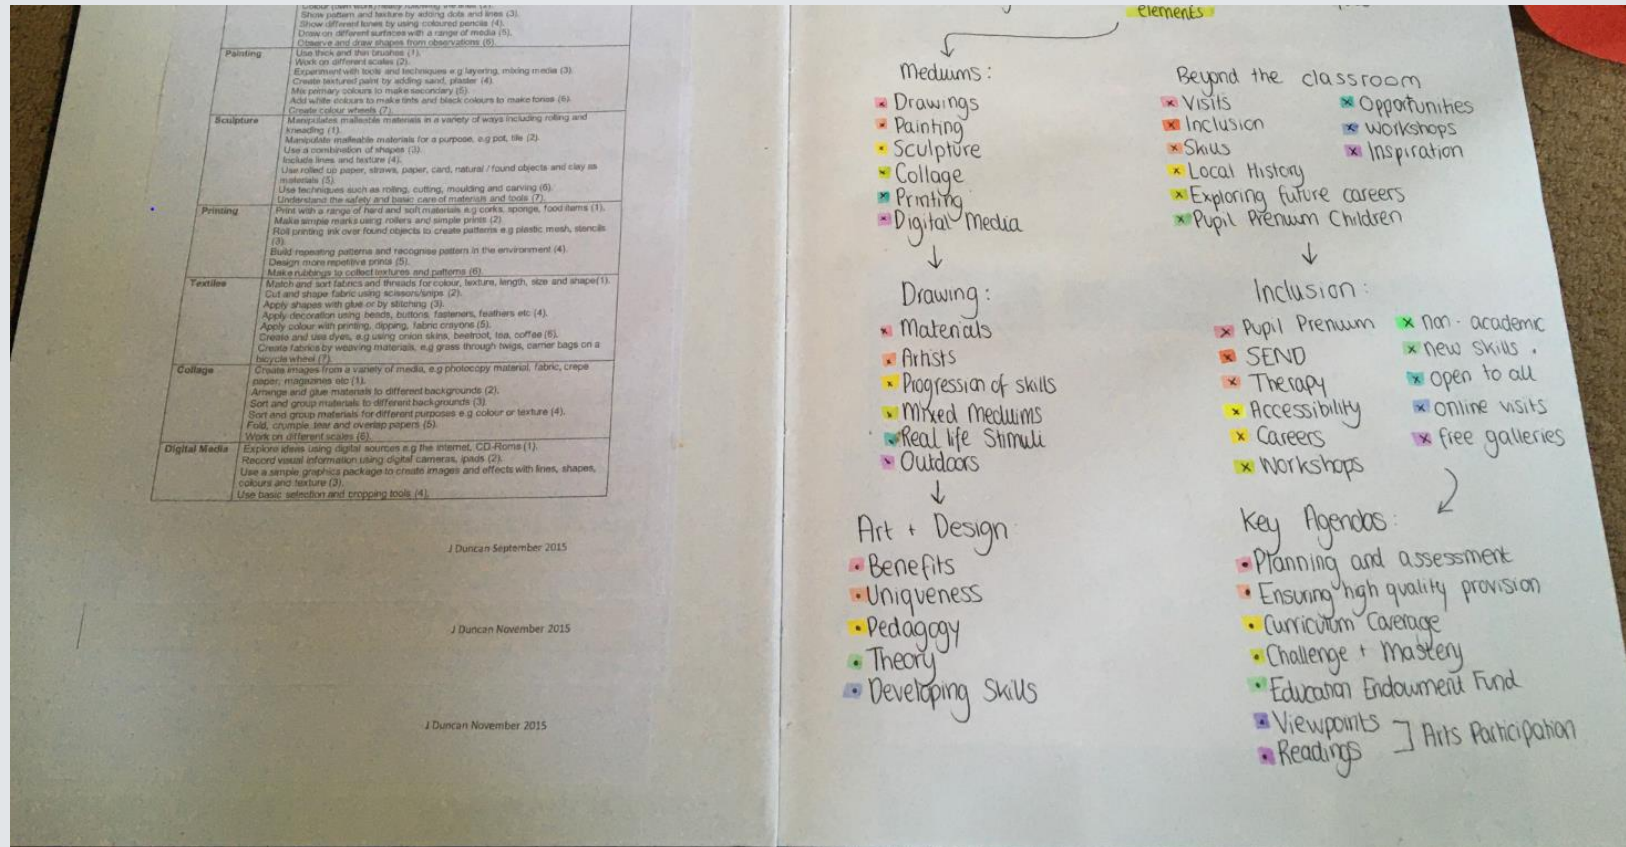 Show pattern and texture by adding dots and lines (3).
Show different tones by using coloured pencils (4).
Draw on different surfaces with a range of media (5).
Observe and draw shapes from observations (6).
Painting
Use thick and thin brushes (1).
Work on different scales (2).
Experiment with tools and techniques e.g layering, mixing media (3).
Create textured paint by adding sand, plaster (4).
Mix primary colours to make secondary (5).
Add white colours to make tints and black colours to make tones (6).
Create colour wheels (7).
Sculpture
Manipulates malleable materials in a variety of ways including rolling and
kneading (1).
Manipulate malleable materials for a purpose, e.g pot, tile (2).
Use a combination of shapes (3).
Include lines and texture (4).
Use rolled up paper, straws, paper, card, natural / found objects and clay as
materials (5).
Use techniques such as rolling, cutting, moulding and carving (6).
Understand the safety and basic care of materials and tools (7).
Printing
Print with a range of hard and soft materials e.g corks, sponge, food items (1).
Make simple marks using rollers and simple prints (2).
Roll printing ink over found objects to create patterns e.g plastic mesh, stencils
(3).
Build repeating patterns and recognise pattern in the environment (4).
Design more repetitive prints (5).
Make rubbings to collect textures and patterns (6).
Textiles
Match and sort fabrics and threads for colour, texture, length, size and shape(1).
Cut and shape fabric using scissors/snips (2).
Apply shapes with glue or by stitching (3).
Apply decoration using beads, buttons, fasteners, feathers etc (4).
Apply colour with printing, dipping, fabric crayons (5).
Create and use dyes, e.g using onion skins, beetroot, tea, coffee (6).
Create fabrics by weaving materials, e.g grass through twigs, carrier bags on a
bicycle wheel (7).
Collage
Create images from a variety of media, e.g photocopy material, fabric, crepe
paper, magazines etc (1).
Arrange and glue materials to different backgrounds (2).
Sort and group materials to different backgrounds (3).
Sort and group materials for different purposes e.g colour or texture (4).
Fold, crumple, tear and overlap papers (5).
Work on different scales (6).
Digital Media
Explore ideas using digital sources e.g the internet, CD-Roms (1).
Record visual information using digital cameras, ipads (2).
Use a simple graphics package to create images and effects with lines, shapes,
colours and texture (3).
Use basic selection and cropping tools (4).
J Duncan September 2015
J Duncan November 2015
J Duncan November 2015
elements
Mediums:
Drawings
Painting
Sculpture
Collage
Printing
Digital Media
Drawing:
Materials
Artists
Progression of skills
Mixed Meduims
Real life Stimuli
Outdoors
Art + Design
Benefits
Uniqueness
Pedagogy
Theory
Developing Skills
Beyond the classroom
Visits
Inclusion
Skills
Local History
Exploring future careers
Pupil Premium Children
Opportunities
workshops
Inspiration
Inclusion:
Pupil Premium
SEND
Therapy
Accessibility
Careers
Workshops
non-academic
new skills.
open to all
online visits
free galleries
Key Agendas:
Planning and assessment
Ensuring high quality provision
Curriculum Coverage
Challenge + Mastery
Education Endowment Fund
Viewpoints
Readings
Arts Participation